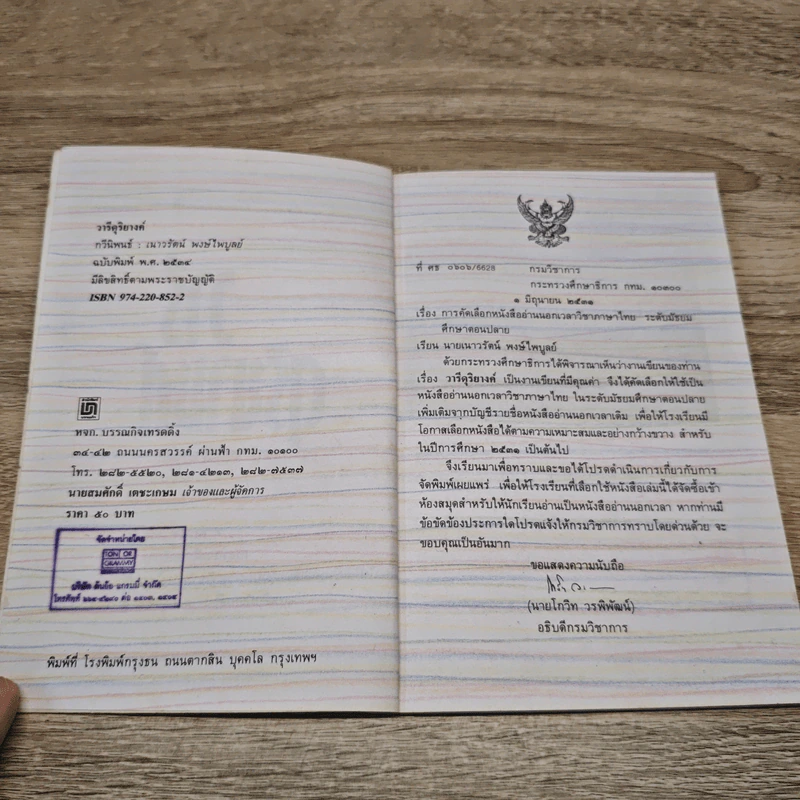 วารีดุริยางค์
กวีนิพนธ์ : เนาวรัตน์ พงษ์ไพบูลย์
ฉบับพิมพ์ พ.ศ. ๒๕๓๔
มีลิขสิทธิ์ตามพระราชบัญญัติ
ISBN 974-220-852-2
หจก. บรรณกิจเทรดดิ้ง
๓๔-๔๒ ถนนนครสวรรค์ ผ่านฟ้า กทม. ๑๐๑๐๐
โทร. ๒๘๒-๕๕๒๐, ๒๘๑-๔๒๑๓, ๒๘๒-๗๕๓๗
นายสมศักดิ์ เตชะเกษม เจ้าของและผู้จัดการ
ราคา ๕๐ บาท
จัดจำหน่ายโดย
GRAMMY
พิมพ์ที่ โรงพิมพ์กรุงธน ถนนตากสิน บุคคโล กรุงเทพฯ
ที่ ศธ ๐๖๐๖/5628 กรมวิชาการ
กระทรวงศึกษาธิการ กทม. ๑๐๓๐๐
๑ มิถุนายน ๒๕๓๑
เรื่อง การคัดเลือกหนังสืออ่านนอกเวลาวิชาภาษาไทย ระดับมัธยม
ศึกษาตอนปลาย
เรียน นายเนาวรัตน์ พงษ์ไพบูลย์
ด้วยกระทรวงศึกษาธิการได้พิจารณาเห็นว่างานเขียนของท่าน
เรื่อง วารีดุริยางค์ เป็นงานเขียนที่มีคุณค่า จึงได้คัดเลือกให้ใช้เป็น
หนังสืออ่านนอกเวลาวิชาภาษาไทย ในระดับมัธยมศึกษาตอนปลาย
เพิ่มเติมจากบัญชีรายชื่อหนังสืออ่านนอกเวลาเดิม เพื่อให้โรงเรียนมี
โอกาสเลือกหนังสือได้ตามความเหมาะสมและอย่างกว้างขวาง สำหรับ
ในปีการศึกษา ๒๕๓๑ เป็นต้นไป
จึงเรียนมาเพื่อทราบและขอได้โปรดดำเนินการเกี่ยวกับการ
จัดพิมพ์เผยแพร่ เพื่อให้โรงเรียนที่เลือกใช้หนังสือเล่มนี้ได้จัดซื้อเข้า
ห้องสมุดสำหรับให้นักเรียนอ่านเป็นหนังสืออ่านนอกเวลา หากท่านมี
ข้อขัดข้องประการใดโปรดแจ้งให้กรมวิชาการทราบโดยด่วนด้วย จะ
ขอบคุณเป็นอันมาก
ขอแสดงความนับถือ
(นายโกวิท วรพิพัฒน์)
อธิบดีกรมวิชาการ